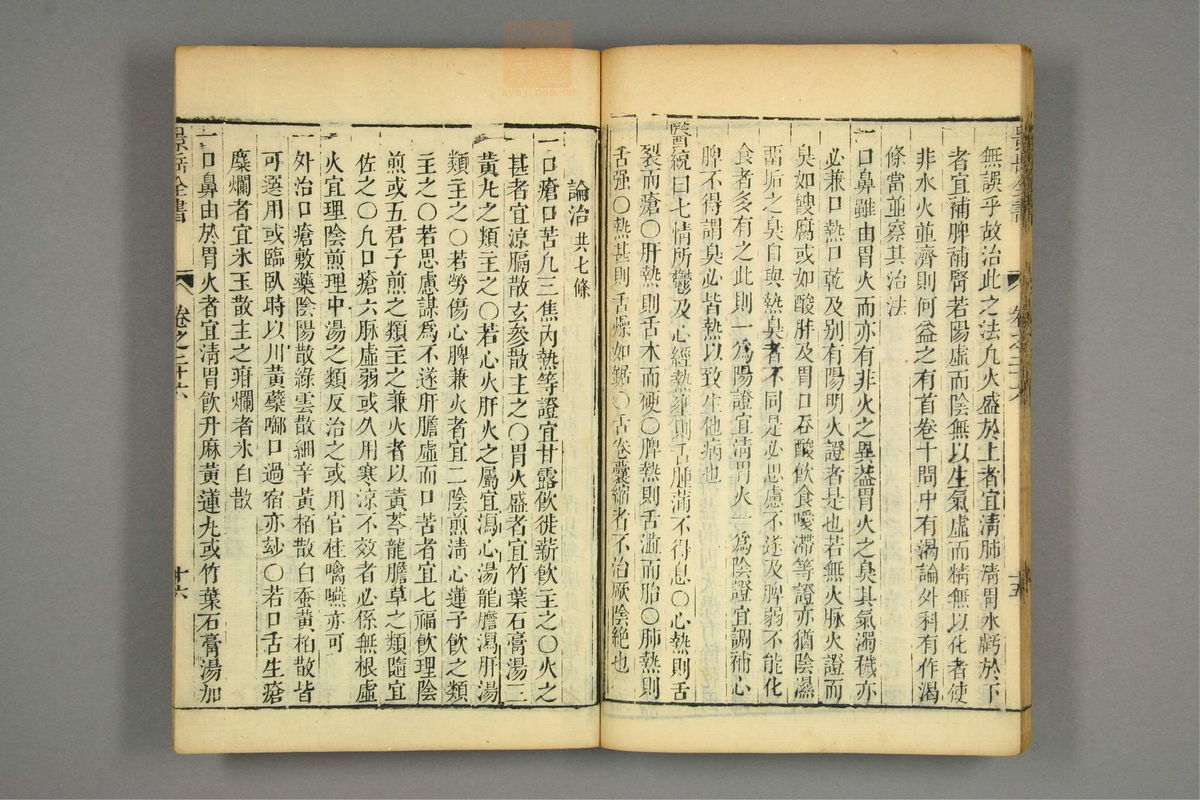 無誤乎故治此之法凢火盛於上者宜清肺清胃水虧於下
者宜補脾補腎若陽虛而陰無以生氣虛而精無以化者使
非水火並濟則何益之有首卷十問中有渴論外科有作渴
條當並察其治法
一口鼻雖由胃火而亦有非火之異葢胃火之臭其氣濁穢亦
必兼口熱口乾及别有陽明火證者是也若無火脉火證而
臭如餿腐或如酸胖及胃口吞酸飲食噯滯等證亦猶陰濕
畱垢之臭自與熱臭者不同是必思慮不遂及脾弱不能化
食者多有之此則一爲陽證宜清胃火一爲陰證宜調補心
脾不得謂臭必皆熱以致生他病也
醫統曰七情所鬱及心經熱壅則舌腫滿不得息○心熱則舌
裂而瘡○肝熱則舌木而硬○脾熱則舌澁而胎○肺熱則
舌强○熱甚則舌燥如鋸○舌卷囊縮者不治厥陰絶也
景岳全書
卷之二十六
十五
論治 共七條
一口瘡口苦凢三焦内熱等證宜甘露飲徙薪飲主之○火之
甚者宜涼膈散玄參散主之○胃火盛者宜竹葉石膏湯三
黃丸之類主之○若心火肝火之屬宜瀉心湯龍膽瀉肝湯
類主之○若勞傷心脾兼火者宜二陰煎清心蓮子飲之類
主之○若思慮謀爲不遂肝膽虛而口苦者宜七福飲理陰
煎或五君子煎之類主之兼火者以黃芩龍膽草之類隨宜
佐之○凢口瘡六脉虛弱或久用寒涼不效者必係無根虛
火宜理陰煎理中湯之類反治之或用官桂噙嚥亦可
外治口瘡敷藥陰陽散綠雲散細辛黃栢散白蚕黃栢散皆
可選用或臨臥時以川黃蘗啣口過宿亦玅○若口舌生瘡
糜爛者宜氷玉散主之疳爛者氷白散
一口鼻由於胃火者宜清胃飲升麻黃蓮丸或竹葉石膏湯加
景岳全書
卷之二十六
十六